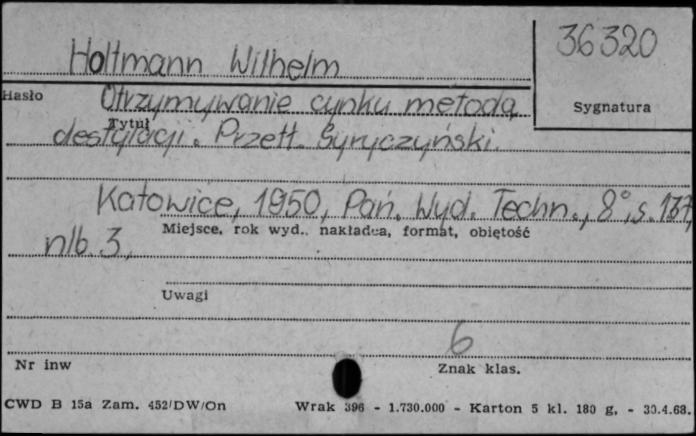 36320
Holtmann Wilhelm
Hasło
Sygnatura
Otrzymywanie cynku metodą
Tytuł
destylacji. Przetł. Gyryczyński.
Katowice, 1950, Pań. Wyd. Techn., 8°, s. 137,
Miejsce, rok wyd., nakładca, format, objętość
nlb. 3,
Uwagi
6
Nr inw
Znak klas.
CWD B 15a Zam. 452/DW/On Wrak 396 - 1.730.000 - Karton 5 kl. 180 g, - 30.4.68.